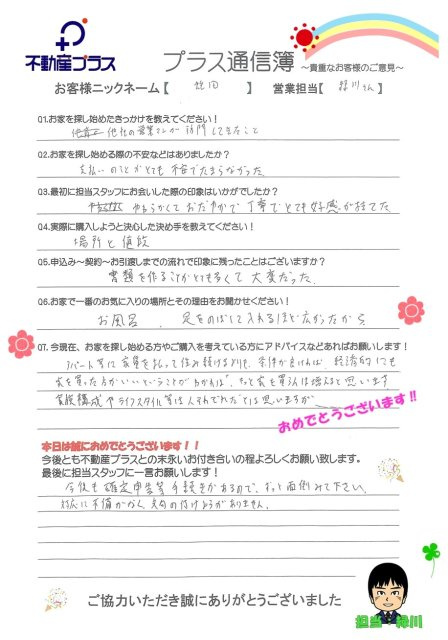 不動産プラス
プラス通信簿 ～貴重なお客様のご意見～
お客様ニックネーム【 】 営業担当【 緑川さん 】
Q1.お家を探し始めたきっかけを教えてください!
他社の営業さんが訪問して来たこと
Q2.お家を探し始める際の不安などはありましたか?
支払いのことがとても不安でたまらなかった
Q3.最初に担当スタッフにお会いした際の印象はいかがでしたか?
やわらかくておだやかで丁寧でとても好感が持てた
Q4.実際に購入しようと決心した決め手を教えてください!
場所と値段
Q5.申込み～契約～お引渡しまでの流れで印象に残ったことはございますか?
書類を作ることがとても多くて大変だった.
Q6.お家で一番のお気に入りの場所とその理由をお聞かせください!
お風呂 . 足をのばして入れるほど広かったから
Q7.今現在、お家を探し始める方やご購入を考えている方にアドバイスなどあればお願いします!
アパート等に家賃を払って住み続けるよりも、条件が良ければ、経済的にも
家を買った方がいいということがわかれば、もっと家を買う人は増えると思います
家族構成やライフスタイル等は人それぞれだとは思いますが
おめでとうございます!!
本日は誠におめでとうございます!!
今後とも不動産プラスとの末永いお付き合いの程よろしくお願い致します。
最後に担当スタッフに一言お願いします!
今後も確定申告等手続きがあるので、もっと面倒みて下さい.
対応に不備がなく、文句の付けようがありません.
ご協力いただき誠にありがとうございました
担当:緑川